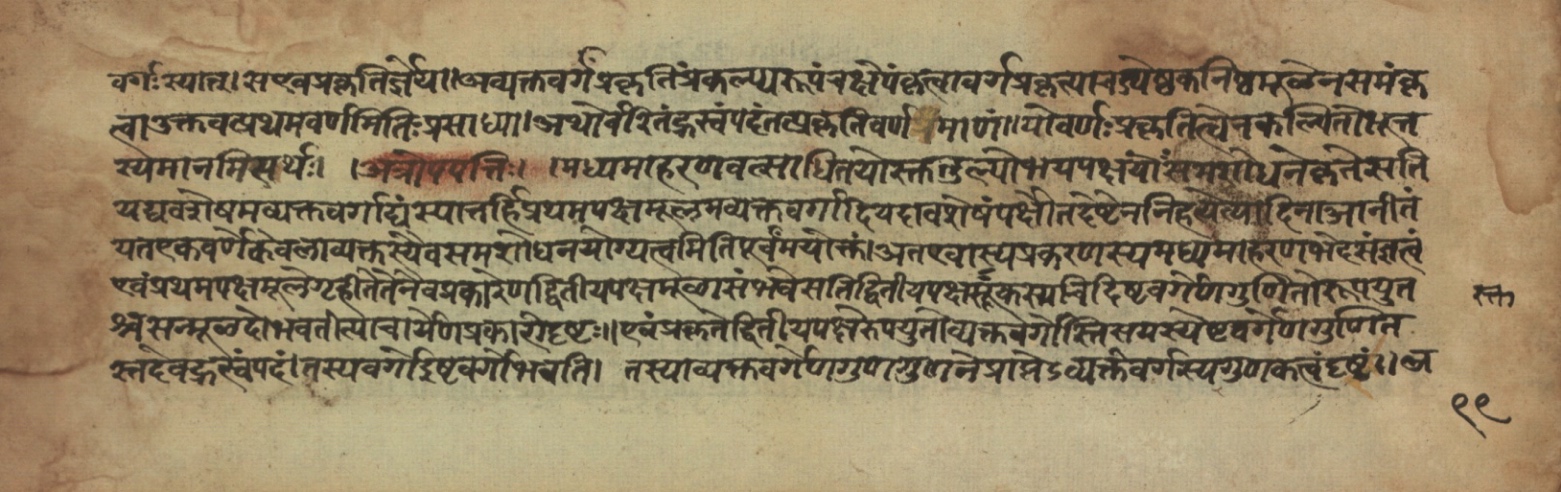 वर्गः स्यात्। सएवप्रकृतिर्ज्ञेय॥ अव्यक्तवर्गप्रकृतिंप्रकल्प्यरूपंचक्षेपंकृत्वावर्गप्रकृत्याचज्येष्ठकनिष्ठमूळेनसमंकृ
त्वाउक्तवत्प्रथमवर्णमितिःप्रसाध्या। अथोर्वरितंह्रस्वंपदंतत्प्रकृतिवर्ण मानं॥ योवर्णःप्रकृतित्वेनकल्पितो
स्यमानमित्यर्थः। ।अत्रोपपत्तिः। ।मध्यमाहरणवत्साधितयोस्क्ततुल्योभयपक्षयोःसमशोधनेकृतेसति
यद्यवशेषमव्यक्तवर्गाद्यंस्यात्तर्हिप्रथमपक्षमूलमव्यक्तवर्गादियदावशेषंपक्षौतदेष्टेननिहत्येत्यादिनाआनीतं
यतएकवर्णेकेवलाव्यक्तस्यैवसमशोधनयोग्यत्वमितिपूर्वंमयोक्तं। अतएवास्यप्रकरणस्यमध्यमाहरणभेदसंज्ञत्वं
एवंप्रथमपक्षमूलेगृहीतेतेनैवप्रकारेणद्वितीयपक्षमूळासंभवेसतिद्वितीयपक्षस्यूकस्यचिदिष्टवर्गेणगुणितोरूपयुत
सन्मूळदोभवतीत्याचार्येणप्रकारोदृष्टः॥ एवंप्रकृतेद्वितीयपक्षेरूपयुतोव्यक्तवर्गोस्तिसयस्येष्टवर्गेणगुणित
स्तदेवह्रस्वंपदं। तस्यवर्गोइष्टवर्गोभवति। तस्याव्यक्तवर्गेणगुणगुणनेप्राप्तेऽव्यक्तवर्गस्यगुणकत्वंदृष्टं॥ अ
१९